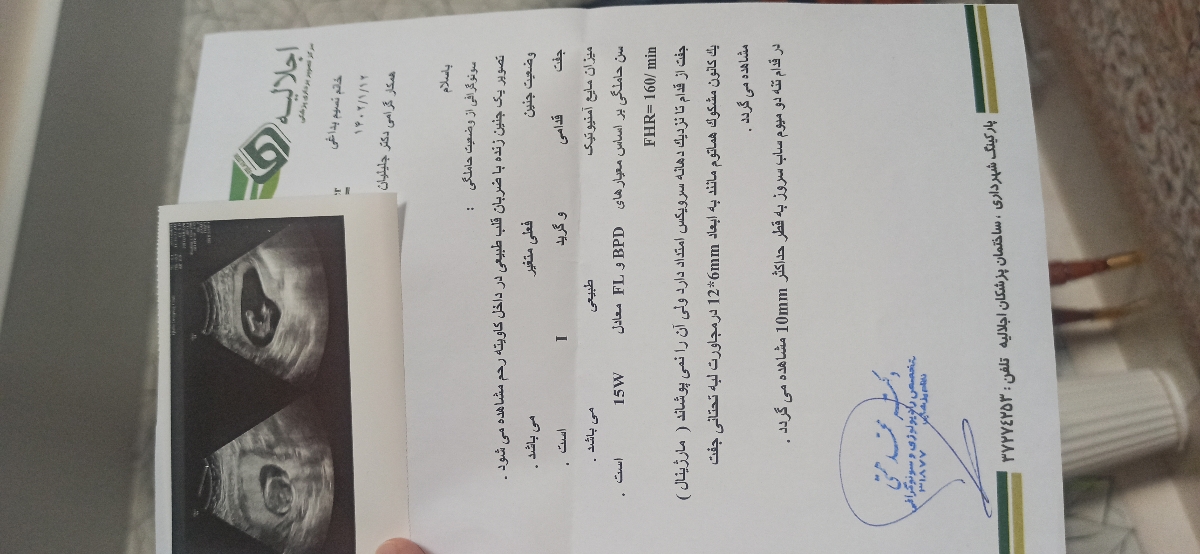 اجلالیه
مرکز تصویر برداری پزشکی
خانم نسیم یداغی
۱۴۰۲/۱/۱۲
همکار گرامی دکتر جلیلیان
باسلام
سونوگرافی از وضعیت حاملگی :
تصویر یک جنین زنده با ضربان قلب طبیعی در داخل کاویته رحم مشاهده می شود .
وضعیت جنین فعلی متغیر می باشد .
جفت قدامی و گرید I است .
میزان مایع آمنیوتیک طبیعی می باشد .
سن حاملگی بر اساس معیارهای BPD و FL معادل 15W است .
FHR= 160/ min
جفت از قدام تا نزدیک دهانه سرویکس امتداد دارد ولی آن را نمی پوشاند ( مارژینال )
یک کانون مشکوک هماتوم مانند به ابعاد 12*6mm درمجاورت لبه تحتانی جفت
مشاهده می گردد .
در قدام تنه دو میوم ساب سروز به قطر حداکثر 10mm مشاهده می گردد .
متخصص رادیولوژی و سونوگرافی
۳۱۸۷۷
پارکینگ شهرداری ، ساختمان پزشکان اجلالیه تلفن : ۳۷۲۷٤۲۵۳